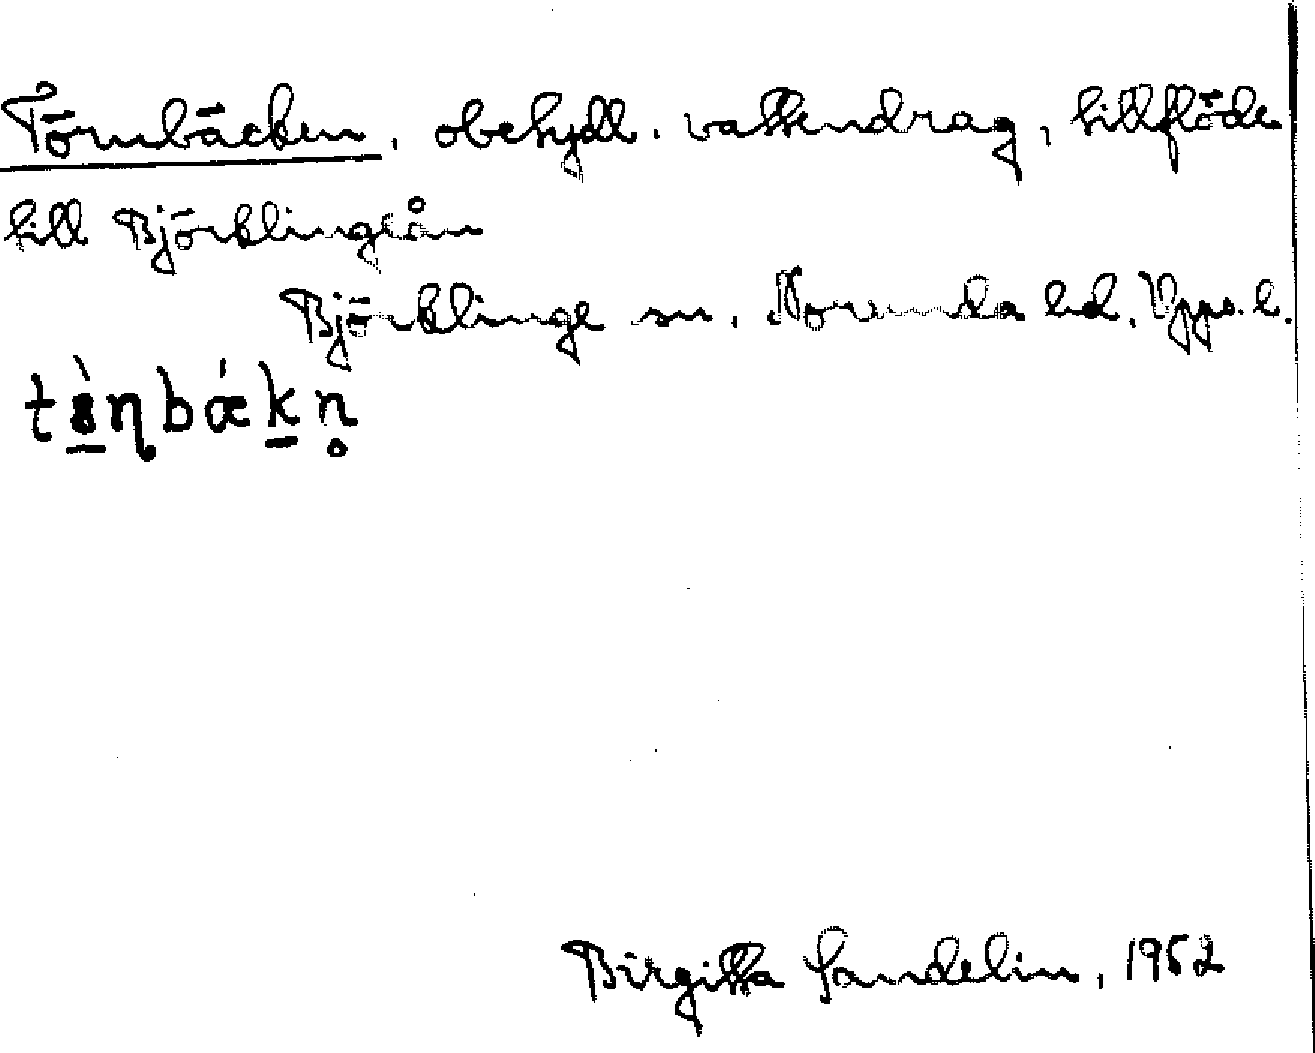 Törnbäcken, obetydl. vattendrag, tillflöde
till Björklingeån
Björklinge sn, Norunda hd, Upps. l.
Birgitta Sandelin, 1952